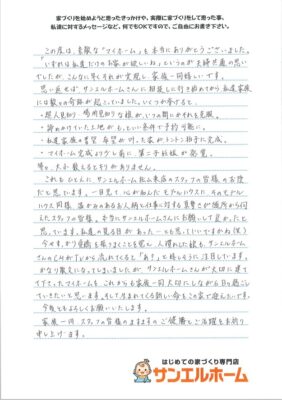 家づくりを始めようと思ったきっかけや、実際に家づくりをして思った事、
私達に対するメッセージなど、何でもOKですので、ご自由にお書き下さい。
この度は、素敵な"マイホーム"を本当にありがとうございました。
"いずれは私達だけのお家が欲しいね"というのが夫婦共通の思い
でしたが、こんなに早くそれが実現し家族一同嬉しいです。
思い返せば、サンエルホームさんに相談しに行き始めてから私達家族
には数々の奇跡が起こっています。いくつか挙げると、
・諦めかけていた土地がもっといい条件で予約可能に。
・私達家族の希望 が叶った家がトントン拍子に完成。
・マイホーム完成より少し前に、第二子妊娠が発覚。
等々、上げ数えるとキリがありません。
これもひとえに、サンエルホーム松山東店のスタッフの皆様のお陰
だと思っています。一目見て心が和んだモデルハウスに、そのモデル
ハウス同様、温かみのあるお人柄と仕事に対する真摯さが随所から伺
えたスタッフの皆様。本当にサンエルホームさんにお願いして良かったと
思っています。
今やすっかり愛着を
さんのCMがTVから流れてくると「あっ!」と嬉しそうに注目しています。
かなり散文になってしまいましたが、サンエルホームさんが大切に建て
て下さったマイホームを、これからも家族一同大切にしながら日々過ごし
ていきたいと思います。そして生まれてくる新しい命もこの家で迎えたいです。
今後ともよろしくお願いいたします。
家族一同 スタッフの皆様のますますのご健勝とご活躍をお祈り
申し上げます。
はじめての家づくり専門店
サンエルホーム